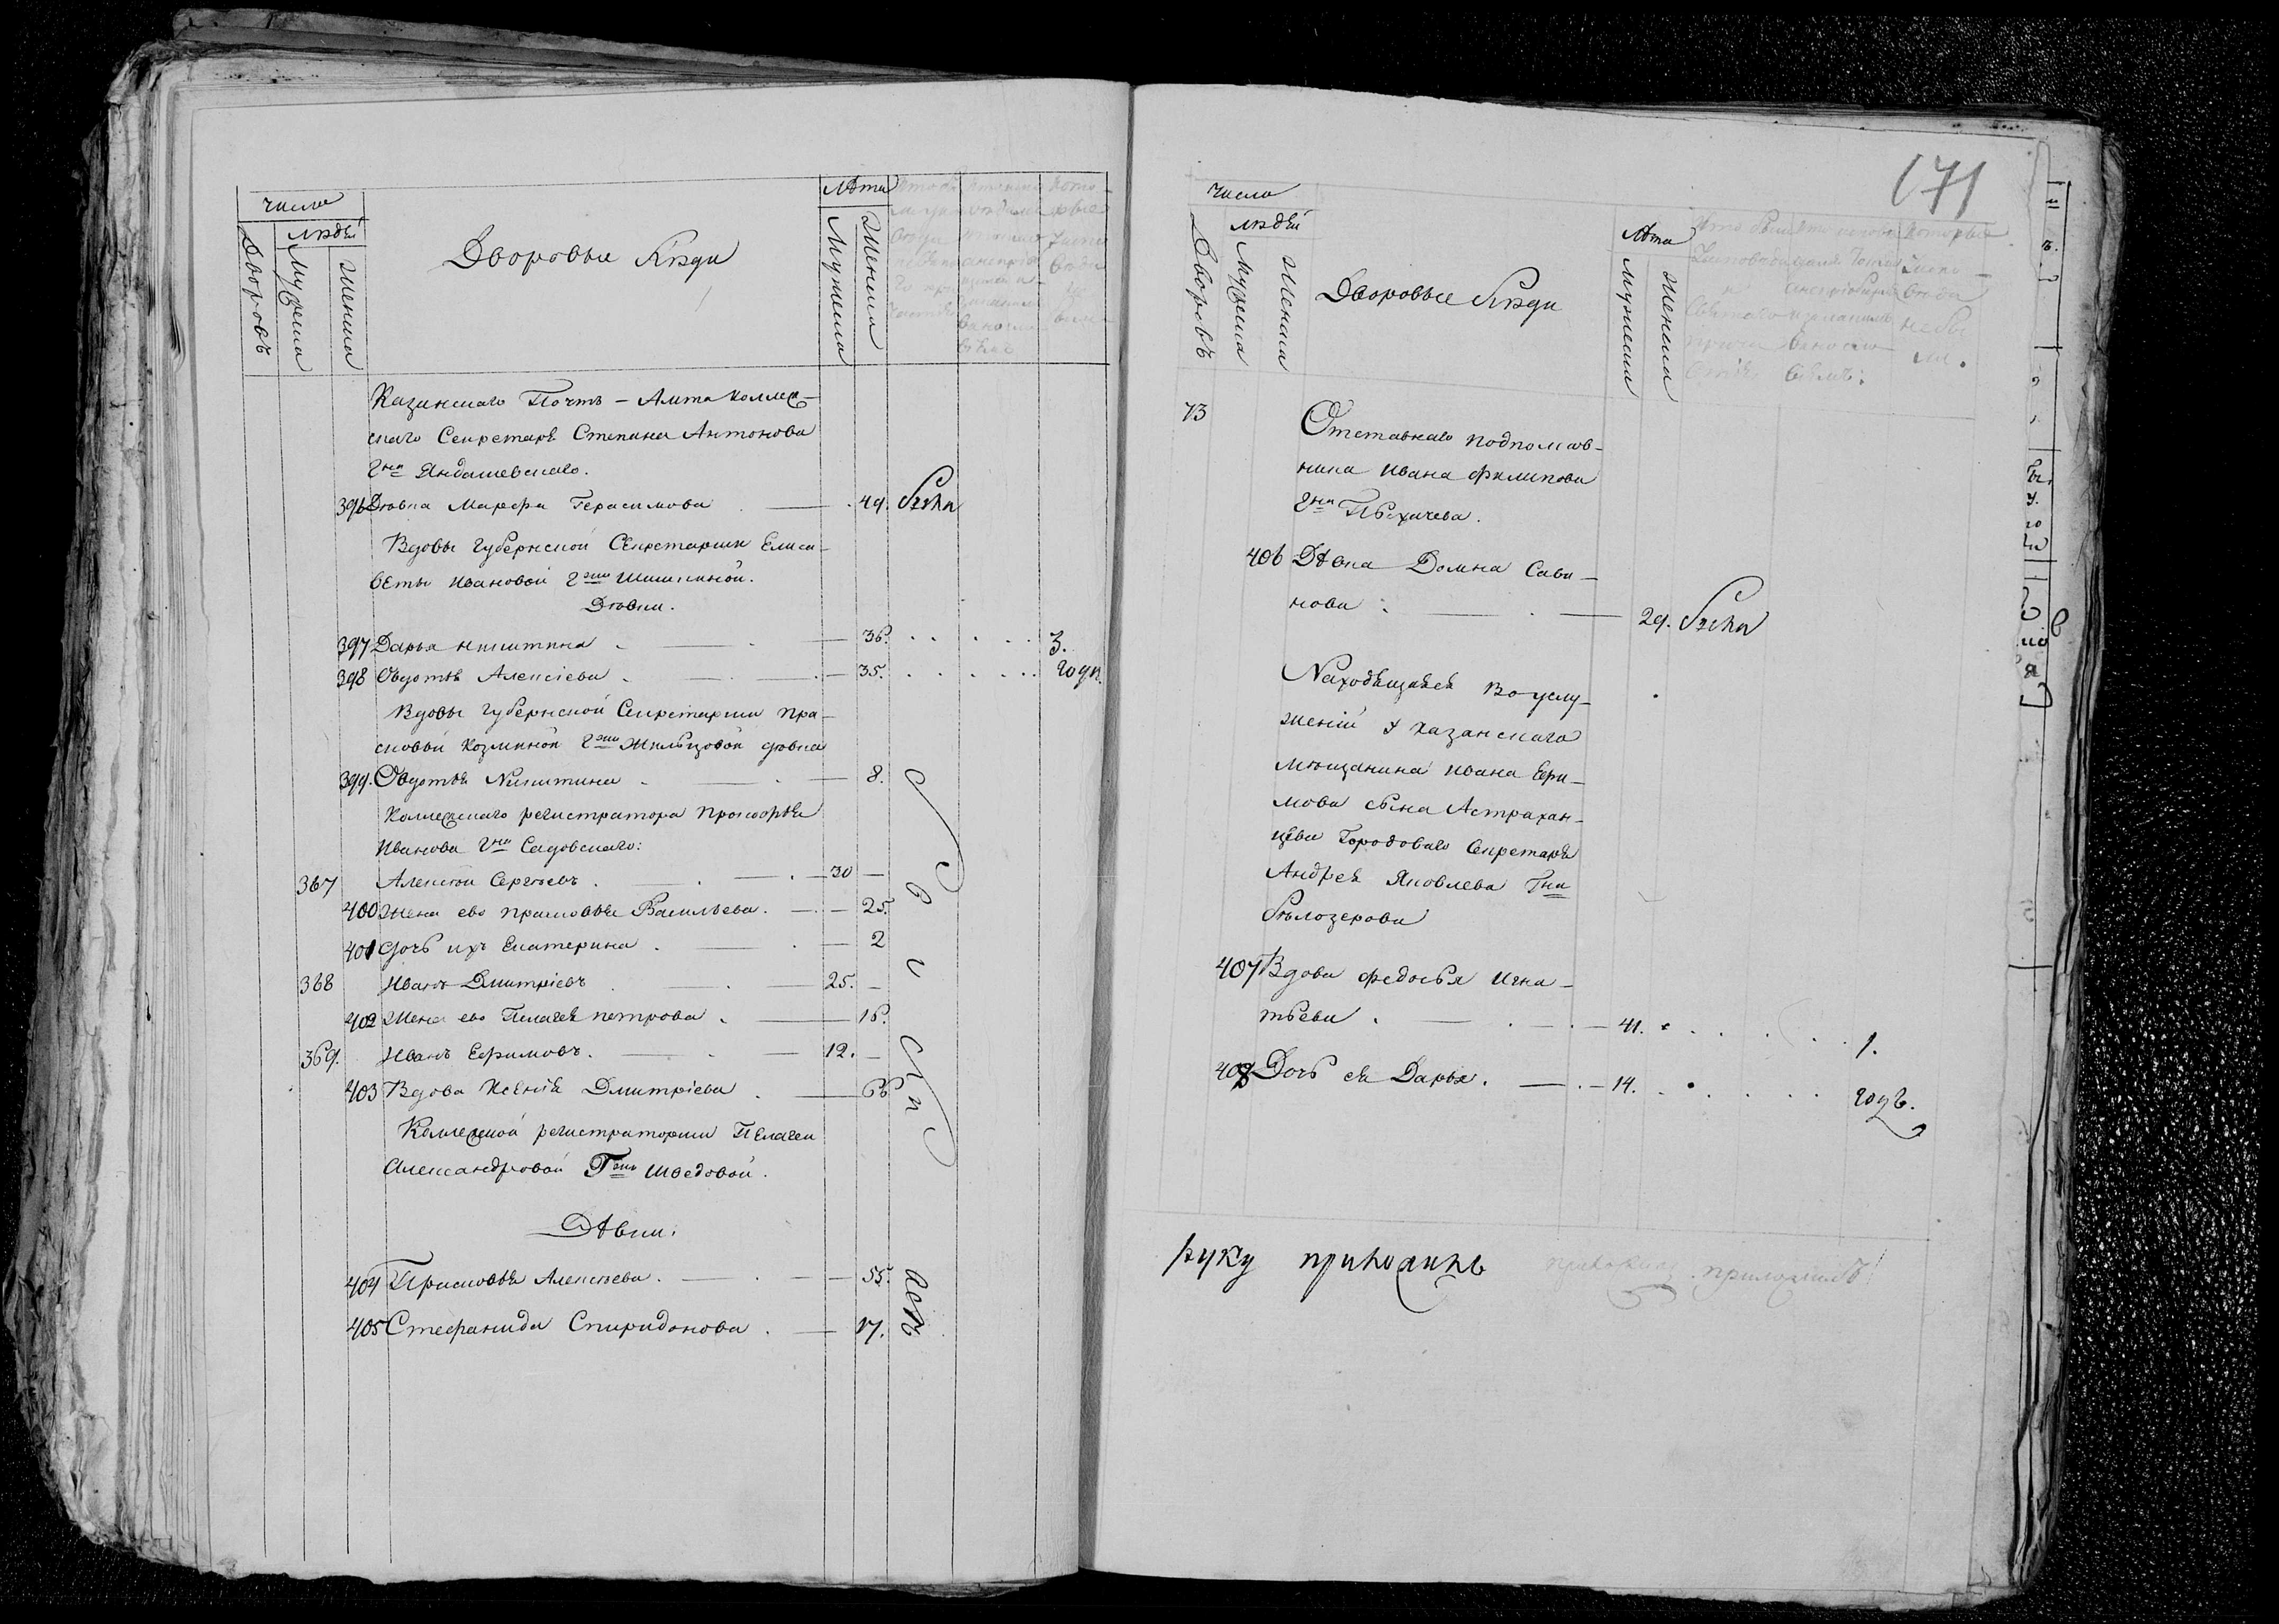 число
людей
Дворовъ
Мужеска
Женска
Дворовые Люди
Лѣта
Мужеска
Женска
Казанскаго Почтъ-Амта коллеж-
скаго Секретаря Степана Антонова
Гна Яндашевскаго.
396 Дѣвка Марфа Герасимова 49.
Вдовы Губернской Секретарши Елиса-
веты Ивановой Гжи Шишкиной.
Дѣвки.
397 Дарья Никитина 36. 3.
398 Овдотья Алексіева 35. года.
Вдовы Губернской Секретарши Пра-
сковьи Козминой Гжи дѣвка
399. Овдотья Никитина 8.
Коллежскаго регистратора Прокофья
Иванова Гна Садовскаго:
367 Алексѣй Сергѣевъ 30
400 Жена ево Прасковья Васильева. 25.
401 Дочь ихъ Екатерина 2
368 Иванъ Дмитріевъ 25.
402 Жена ево Пелагея петрова 16.
369. Иванъ Ефимовъ. 12.
403 Вдова Ксенія Дмитріева 66
Коллежской регистраторши Пелагеи
Александровой Гжи Шведовой.
Дѣвки.
404 Прасковья Алексѣева. 55.
405 Стефанида Спиридонова 17.
171
число
людей
Дворовъ
Мужеска
Женска
Дворовые Люди
Лѣта
Мужеска
Женска
73
Отставнаго подполков-
ника Ивана Филипова
Гна
406 Дѣвка Домна Сави-
нова 29.
Находящаяся во услу-
женіи у казанскаго
мѣщанина Ивана Ефи-
мова сына Астрахан-
цева Городоваго Секретаря
Андрея Яковлева Гна
Бѣлозерова
407 Вдова Федосья Игна-
тьева 41. 1.
408 Дочь ея Дарья. 14. годъ.
руку приложилъ